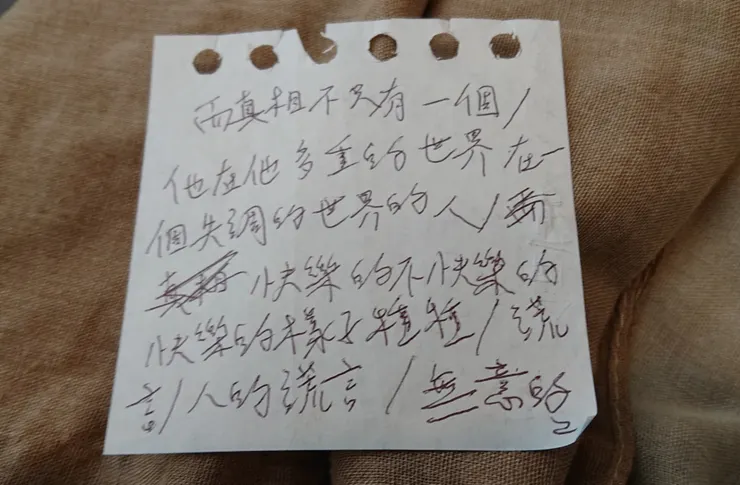 而真相不只有一個/
他在他多重的世界在一
個失調的世界的人/而
真相快樂的不快樂的
快樂的樣子種種/謊
言/人的謊言/無意的
2